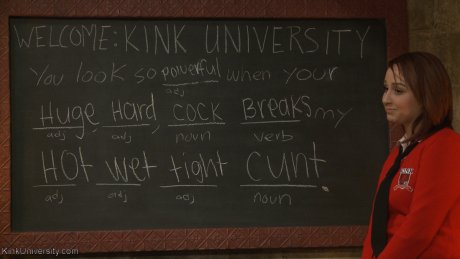 WELCOME: KINK UNIVERSITY
You look so powerful when your
adj
Huge, Hard, COCK Breaks my
adj adj noun verb
HOt wet tight cunt.
adj adj adj noun
KinkUniversity.com